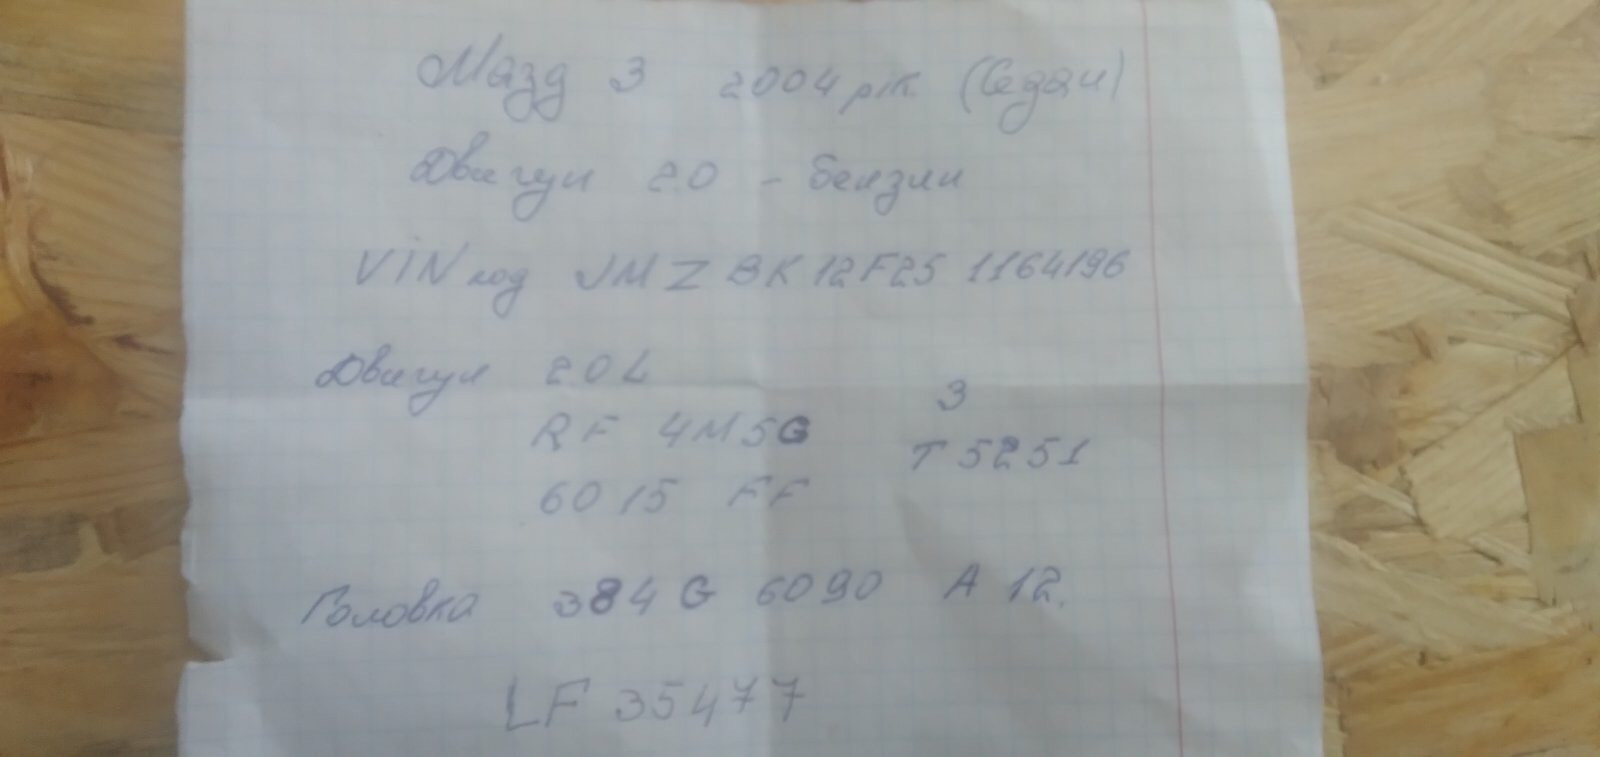 Мазд 3 2004 рік (Седан)
Двигун 2.0 - бензин
VIN код JMZBK12F251164196
Двигун 2.0 L
3
RF 4M5G T5251
6015 FF
Головка 3S4G 6090 A 12.
LF 35477